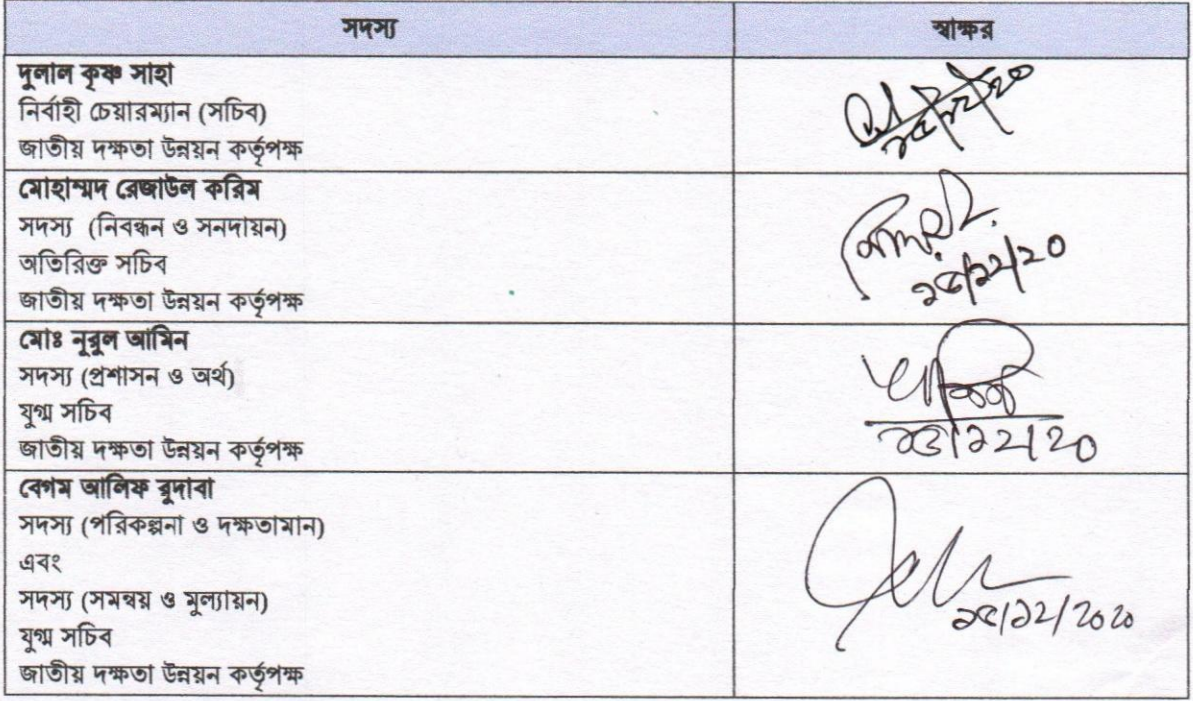 সদস্য
স্বাক্ষর
দুলাল কৃষ্ণ সাহা
নির্বাহী চেয়ারম্যান (সচিব)
জাতীয় দক্ষতা উন্নয়ন কর্তৃপক্ষ
১৫/১২/২০
মোহাম্মদ রেজাউল করিম
সদস্য (নিবন্ধন ও সনদায়ন)
অতিরিক্ত সচিব
জাতীয় দক্ষতা উন্নয়ন কর্তৃপক্ষ
১৫/১২/২০
মোঃ নূরুল আমিন
সদস্য (প্রশাসন ও অর্থ)
যুগ্ম সচিব
জাতীয় দক্ষতা উন্নয়ন কর্তৃপক্ষ
১৫/১২/২০
বেগম আলিফ রুদাবা
সদস্য (পরিকল্পনা ও দক্ষতামান)
এবং
সদস্য (সমন্বয় ও মুল্যায়ন)
যুগ্ম সচিব
জাতীয় দক্ষতা উন্নয়ন কর্তৃপক্ষ
১৫/১২/২০২০